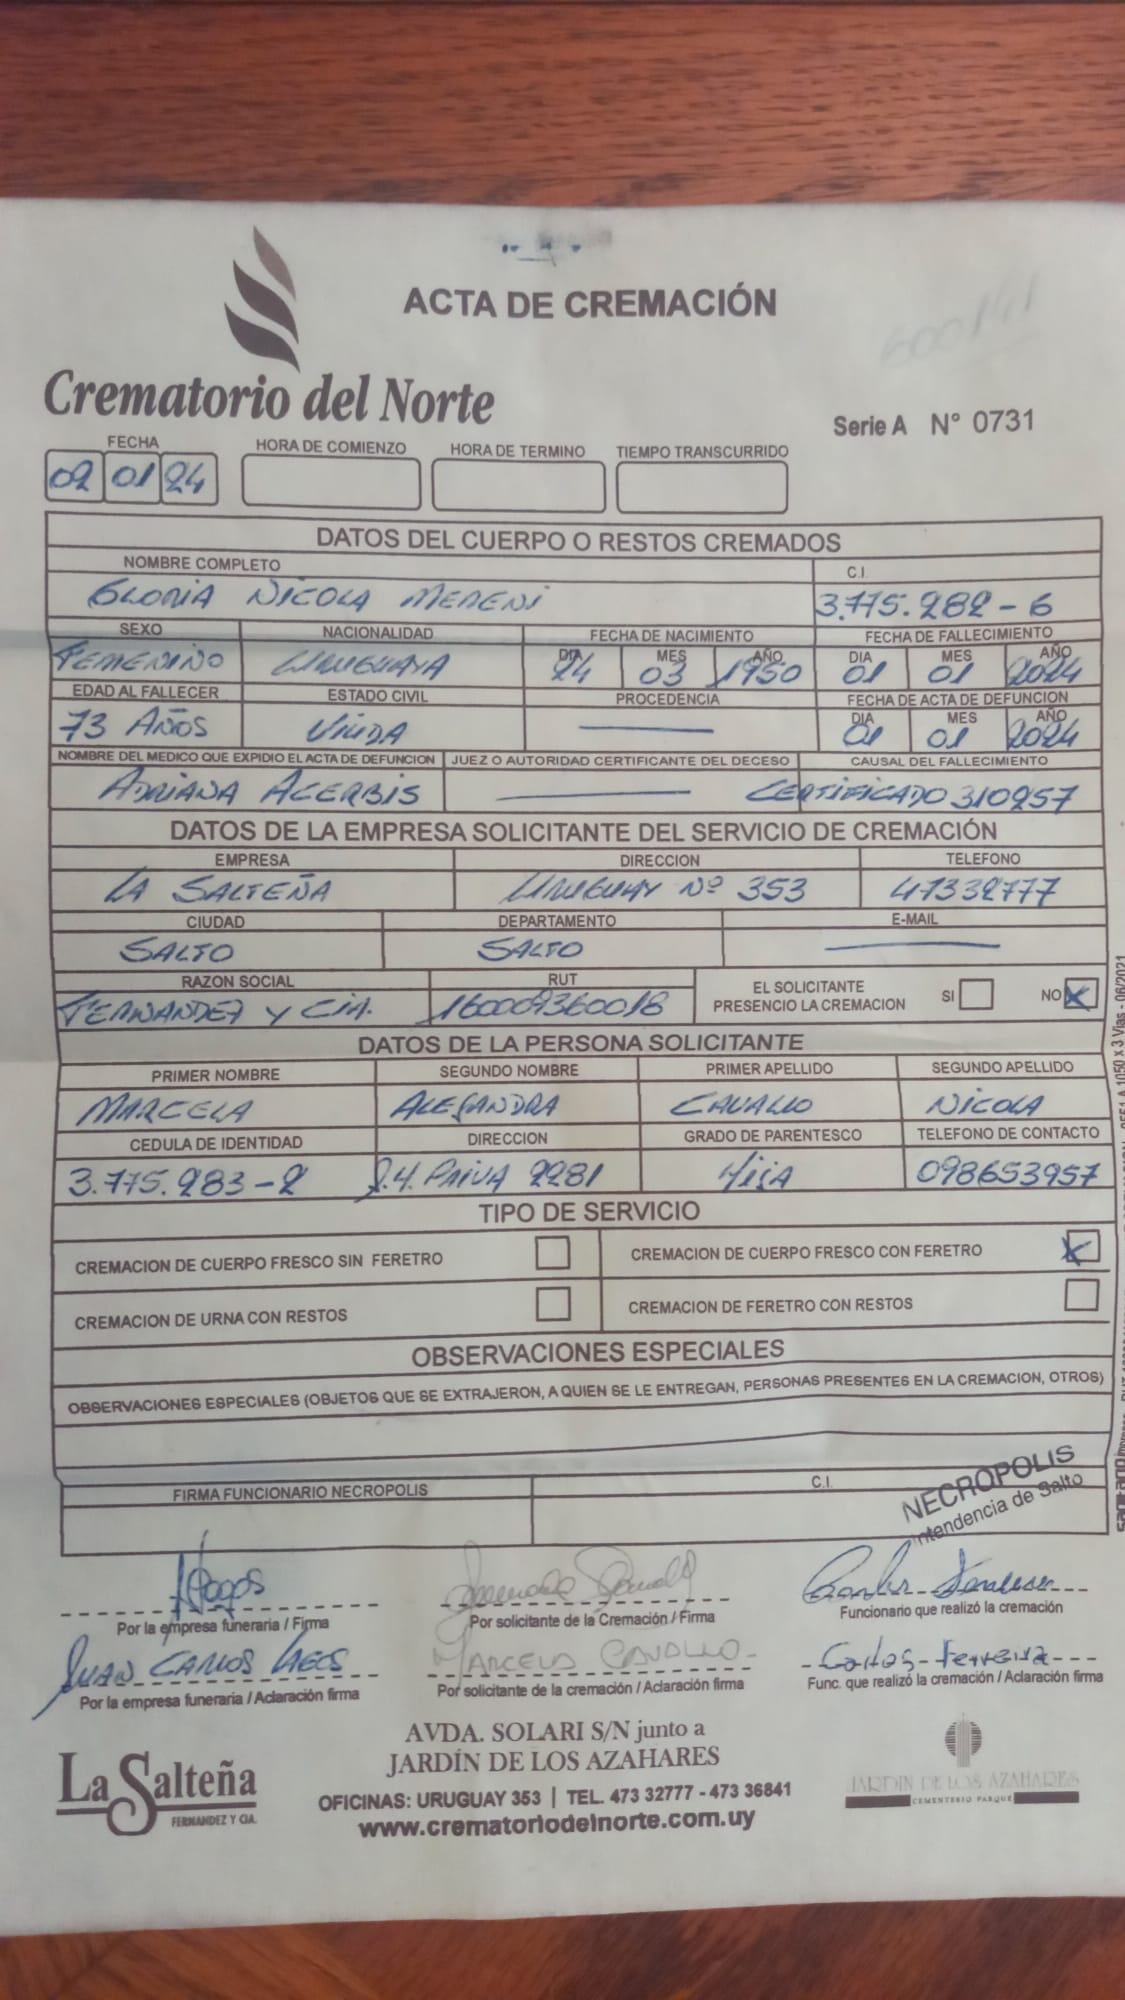 ACTA DE CREMACIÓN
600141
Crematorio del Norte
Serie A N° 0731
FECHA HORA DE COMIENZO HORA DE TERMINO TIEMPO TRANSCURRIDO
02 01 24
DATOS DEL CUERPO O RESTOS CREMADOS
NOMBRE COMPLETO C.I.
GLORIA NICOLA MERENI 3.775.282-6
SEXO NACIONALIDAD FECHA DE NACIMIENTO FECHA DE FALLECIMIENTO
DIA MES AÑO DIA MES AÑO
FEMENINO URUGUAYA 24 03 1950 01 01 2024
EDAD AL FALLECER ESTADO CIVIL PROCEDENCIA FECHA DE ACTA DE DEFUNCION
DIA MES AÑO
73 AÑOS VIUDA 01 01 2024
NOMBRE DEL MEDICO QUE EXPIDIO EL ACTA DE DEFUNCION JUEZ O AUTORIDAD CERTIFICANTE DEL DECESO CAUSAL DEL FALLECIMIENTO
ADRIANA ACERBIS CERTIFICADO 310257
DATOS DE LA EMPRESA SOLICITANTE DEL SERVICIO DE CREMACIÓN
EMPRESA DIRECCION TELEFONO
LA SALTEÑA URUGUAY Nº 353 47332777
CIUDAD DEPARTAMENTO E-MAIL
SALTO SALTO
RAZON SOCIAL RUT EL SOLICITANTE PRESENCIO LA CREMACION SI NO X
FERNANDEZ Y CIA. 160009360018
DATOS DE LA PERSONA SOLICITANTE
PRIMER NOMBRE SEGUNDO NOMBRE PRIMER APELLIDO SEGUNDO APELLIDO
MARCELA ALEJANDRA CAVALLO NICOLA
CEDULA DE IDENTIDAD DIRECCION GRADO DE PARENTESCO TELEFONO DE CONTACTO
3.775.283-2 PAIVA 2281 HIJA 098653957
TIPO DE SERVICIO
CREMACION DE CUERPO FRESCO SIN FERETRO CREMACION DE CUERPO FRESCO CON FERETRO X
CREMACION DE URNA CON RESTOS CREMACION DE FERETRO CON RESTOS
OBSERVACIONES ESPECIALES
OBSERVACIONES ESPECIALES (OBJETOS QUE SE EXTRAJERON, A QUIEN SE LE ENTREGAN, PERSONAS PRESENTES EN LA CREMACION, OTROS)
FIRMA FUNCIONARIO NECROPOLIS C.I.
NECROPOLIS
Intendencia de Salto
Por la empresa funeraria / Firma Por solicitante de la Cremación / Firma Funcionario que realizó la cremación
JUAN CARLOS LAGOS MARCELA CAVALLO Carlos Ferreira
Por la empresa funeraria / Aclaración firma Por solicitante de la cremación / Aclaración firma Func. que realizó la cremación / Aclaración firma
La Salteña
FERNANDEZ Y CIA.
AVDA. SOLARI S/N junto a
JARDÍN DE LOS AZAHARES
OFICINAS: URUGUAY 353 | TEL. 473 32777 - 473 36841
www.crematoriodelnorte.com.uy
JARDIN DE LOS AZAHARES
CEMENTERIO PARQUE